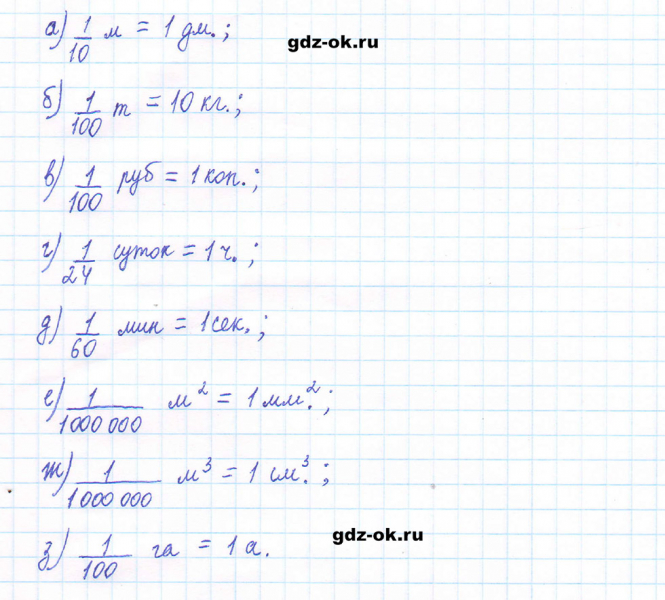 а) 1/10 м = 1 дм.;
gdz-ok.ru
б) 1/100 т = 10 кг.;
в) 1/100 руб = 1 коп.;
г) 1/24 суток = 1 ч.;
д) 1/60 мин = 1 сек.;
е) 1/1000 000 м² = 1 мм.²;
ж) 1/1000 000 м³ = 1 см.³;
gdz-ok.ru
з) 1/100 га = 1 а.